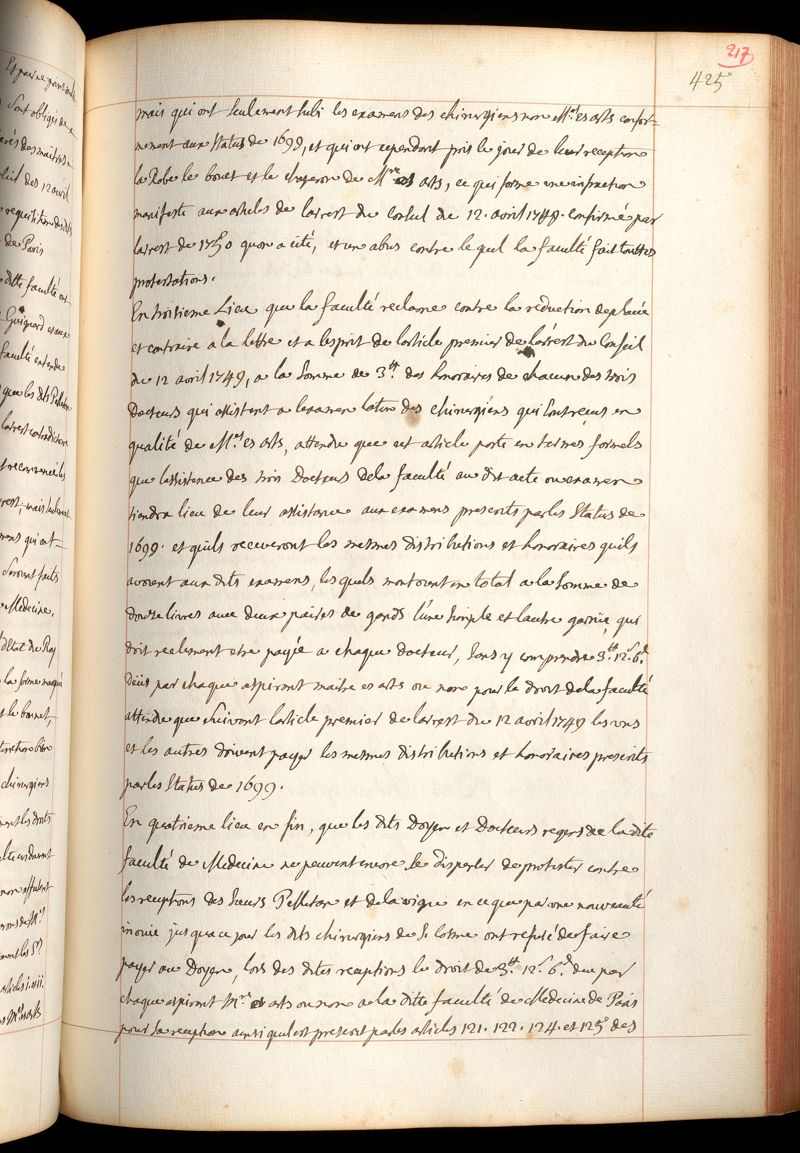 217
425
mais qui ont seulement subi les examens des chirurgiens non Mes es arts confor=
mement aux Statuts de 1699, et qui ont cependant pris le jour de leur reception
la Robe le bonet et le chaperon de Mre es arts, ce qui forme une infraction
manifeste aux articles de larrest du Conseil du 12. avril 1749. confirmé par
larrest de 1750 quon a cité, et un abus contre le quel la faculté fait touttes
protestations.
En troisieme Lieu que la faculté reclame contre la reduction deplacée
et contraire a la lettre et a lesprit de larticle premier de larrest du Conseil
du 12 avril 1749, a la Somme de 3tt. des honoraires de chacun des trois
Docteurs qui assistent a lexamen latin des chirurgiens qui sont recus en
qualité de Mes es arts, attendu que cet article porte en termes formels
que lassistance des trois Docteurs dela faculté au dit acte ou examen
tiendra lieu de leur assistance aux examens prescrits par les Statuts de
1699. et quils receveront les mesmes distributions et honoraires quils
avoient aux dits examens, les quels montoient en total a la Somme de
douze livres avec deux paires de gands l'une simple et lautre garnie, qui
doit reelement etre payée a chaque docteur, sans y comprendre 3tt. 12s. 6d
deüs par chaque aspirant maitre es arts ou non pour le droit dela faculté
attendu que suivant larticle premier de larrest du 12 avril 1749 les uns
et les autres doivent payer les mesmes distributions et honoraires prescrits
par les Statuts de 1699.
En quatrieme lieu en fin, que les dits Doyen et Docteurs regens de la dite
faculté de Medecine ne peuvent encore se dispenser de protester contre
les receptions des sieurs Pelletan et delawigne en ce que par une nouveauté
inouie jusqua ce jour les dits chirurgiens de St. Cosme ont refusé de faire
payer au Doyen, lors des dites receptions le droit de 3tt. 12s. 6d. du par
chaque aspirant Mre es arts ou non a la ditte faculté de Medecine de Paris
pour sa reception ainsi quil est prescrit par les articles 121. 122. 124. et 125 des